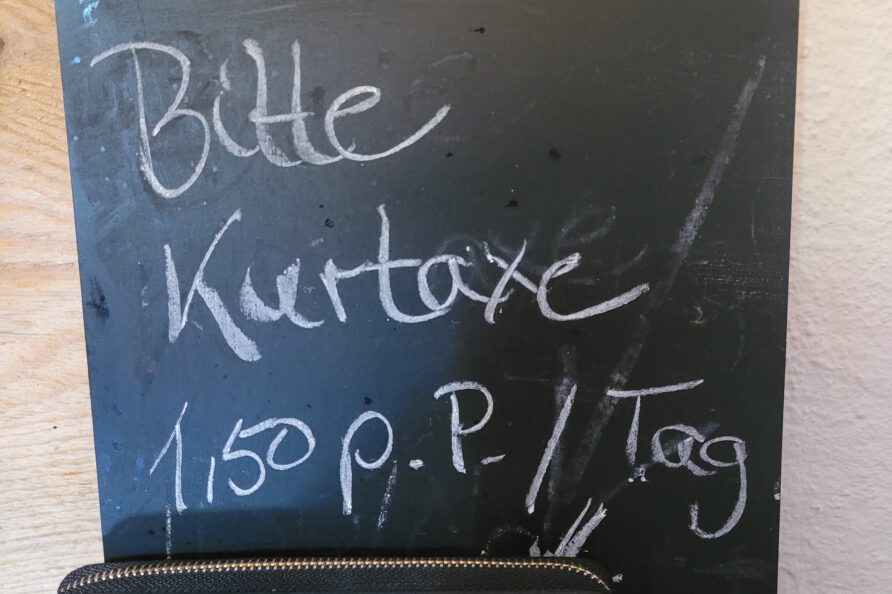 Bitte
Kurtaxe
1,50 p.P. / Tag